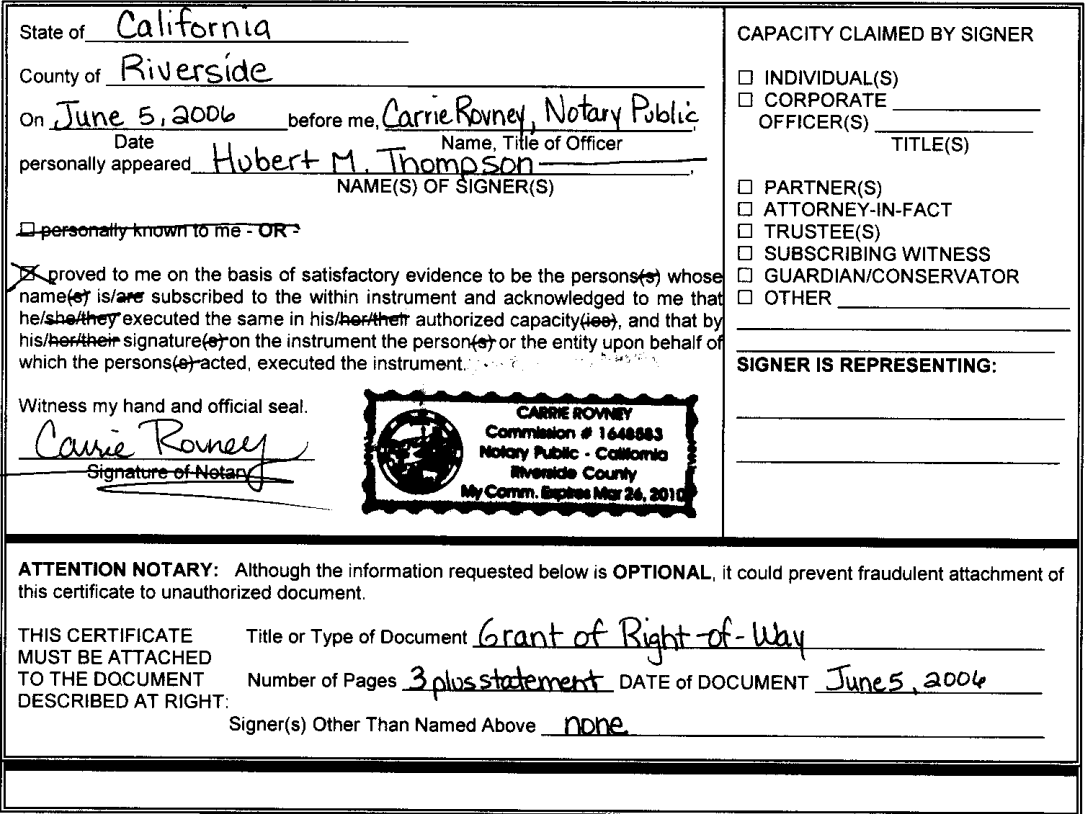 State of California
County of Riverside
On June 5, 2006 before me, Carrie Rovney, Notary Public
Date Name, Title of Officer
personally appeared Hubert M. Thompson
NAME(S) OF SIGNER(S)
☐ personally known to me - OR -
☒ proved to me on the basis of satisfactory evidence to be the persons(s) whose
name(s) is/are subscribed to the within instrument and acknowledged to me that
he/she/they executed the same in his/her/their authorized capacity(ies), and that by
his/her/their signature(s) on the instrument the person(s) or the entity upon behalf of
which the persons(s) acted, executed the instrument.
Witness my hand and official seal.
Carrie Rovney
Signature of Notary
CARRIE ROVNEY
Commission # 1648583
Notary Public - California
Riverside County
My Comm. Expires Mar 26, 2010
CAPACITY CLAIMED BY SIGNER
☐ INDIVIDUAL(S)
☐ CORPORATE
OFFICER(S)
TITLE(S)
☐ PARTNER(S)
☐ ATTORNEY-IN-FACT
☐ TRUSTEE(S)
☐ SUBSCRIBING WITNESS
☐ GUARDIAN/CONSERVATOR
☐ OTHER
SIGNER IS REPRESENTING:
ATTENTION NOTARY: Although the information requested below is OPTIONAL, it could prevent fraudulent attachment of
this certificate to unauthorized document.
THIS CERTIFICATE
MUST BE ATTACHED
TO THE DOCUMENT
DESCRIBED AT RIGHT:
Title or Type of Document Grant of Right-of-Way
Number of Pages 3 plus statement DATE of DOCUMENT June 5, 2006
Signer(s) Other Than Named Above none